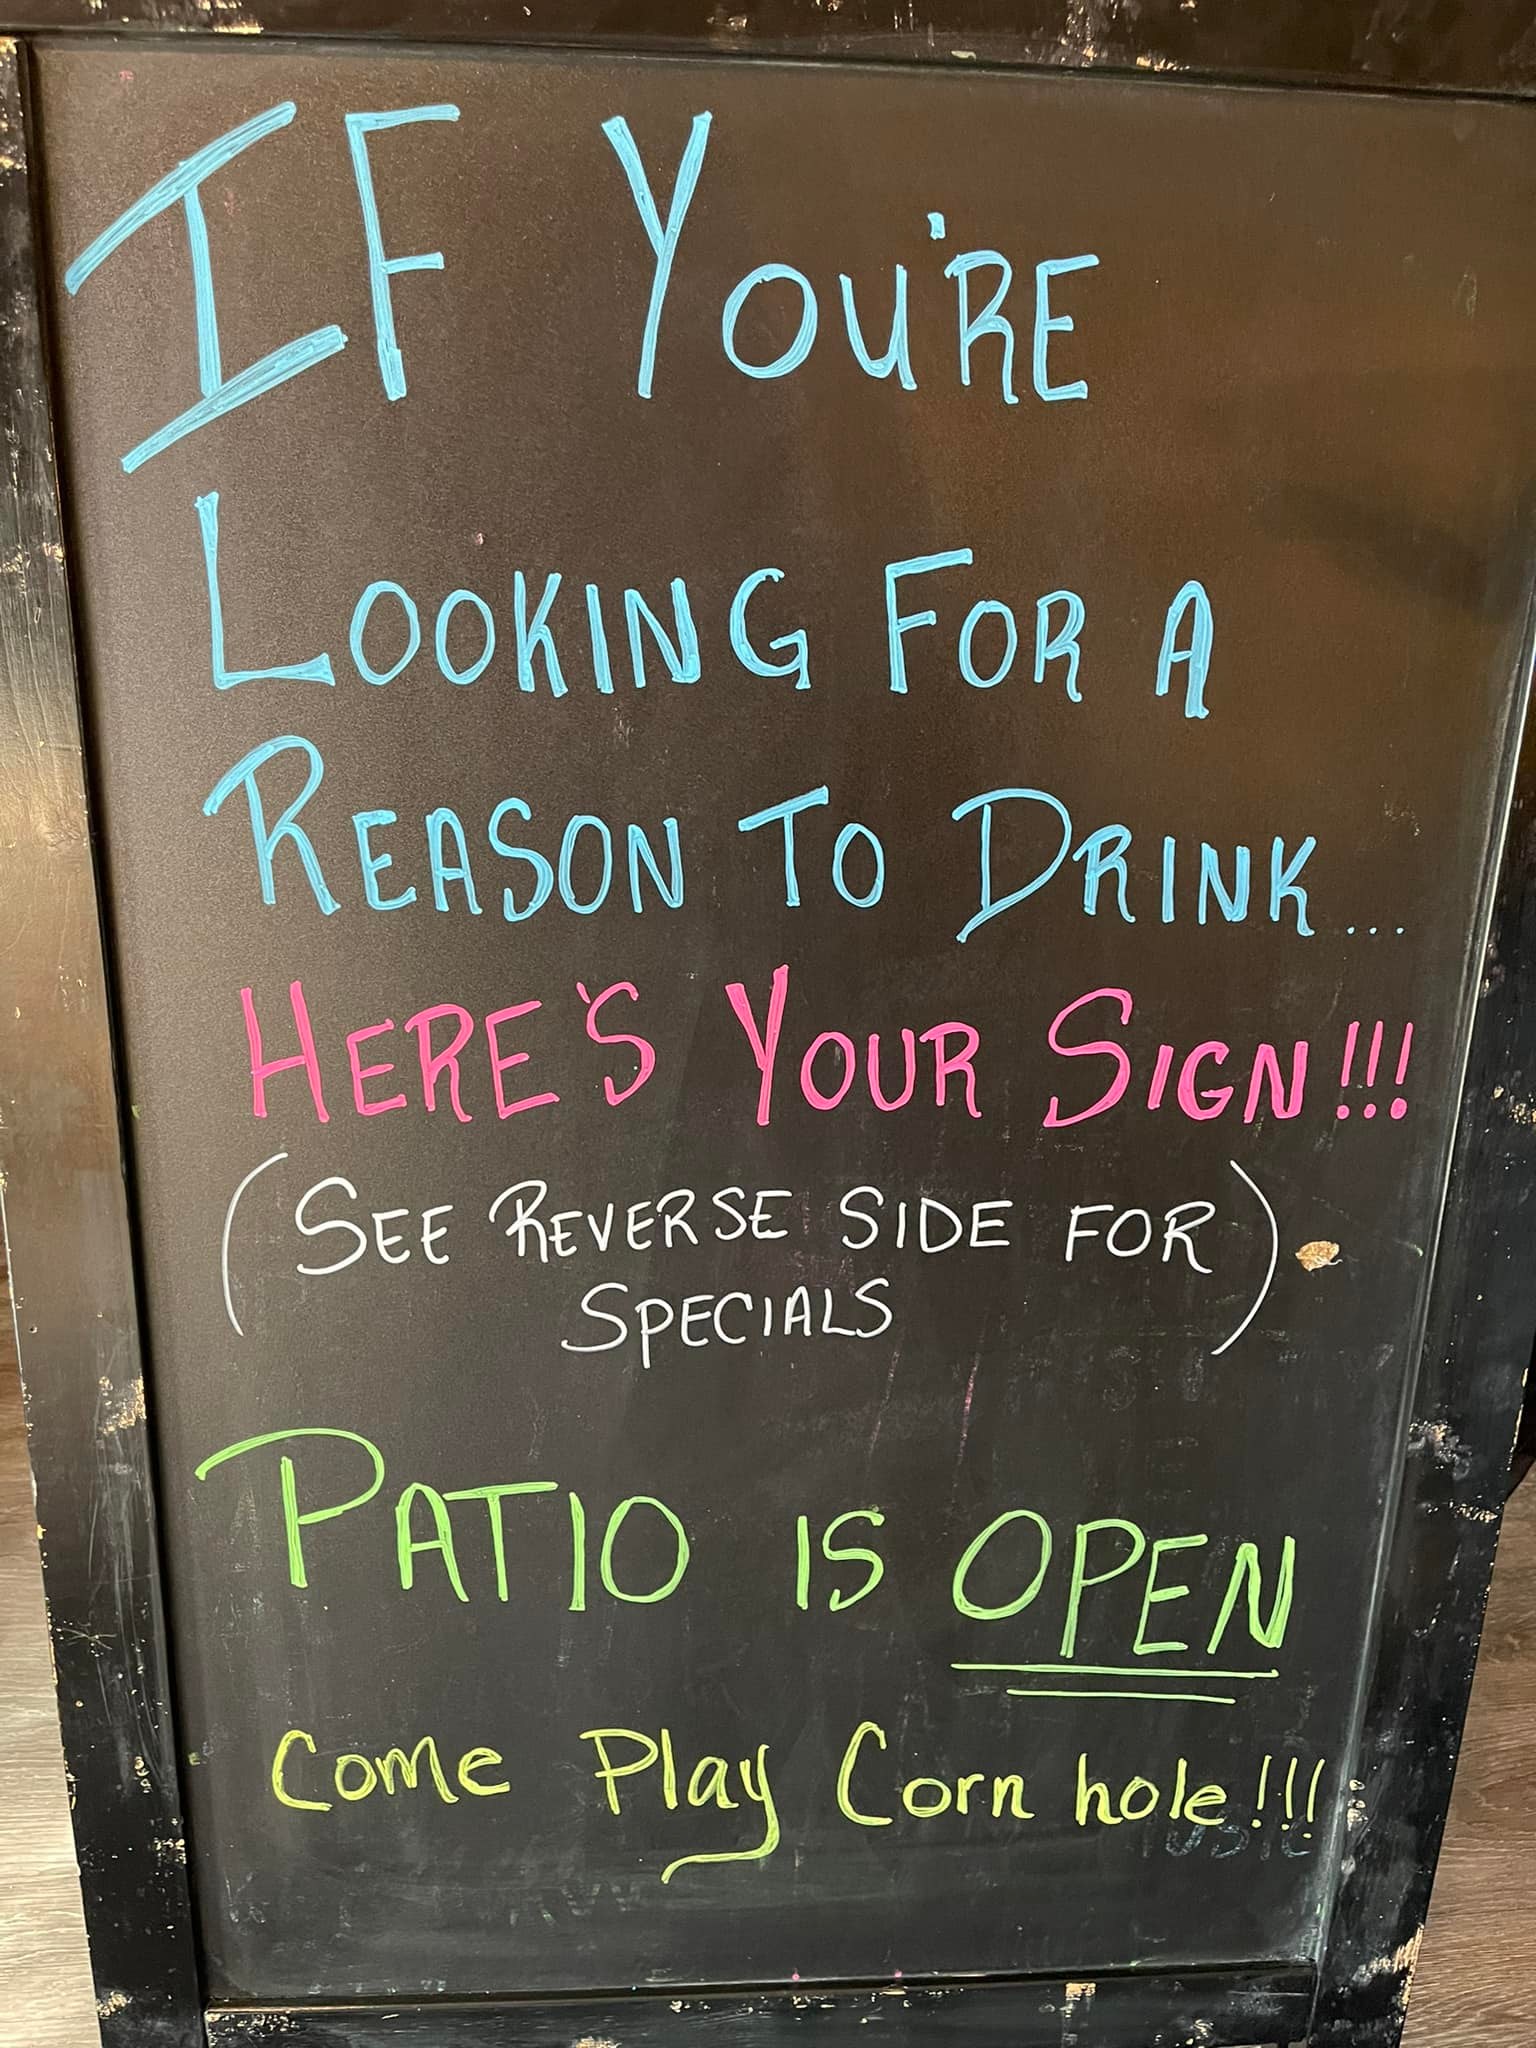 IF YOU'RE
LOOKING FOR A
REASON TO DRINK...
HERE'S YOUR SIGN!!!
(SEE REVERSE SIDE FOR)
SPECIALS
PATIO IS OPEN
Come Play Corn hole!!!